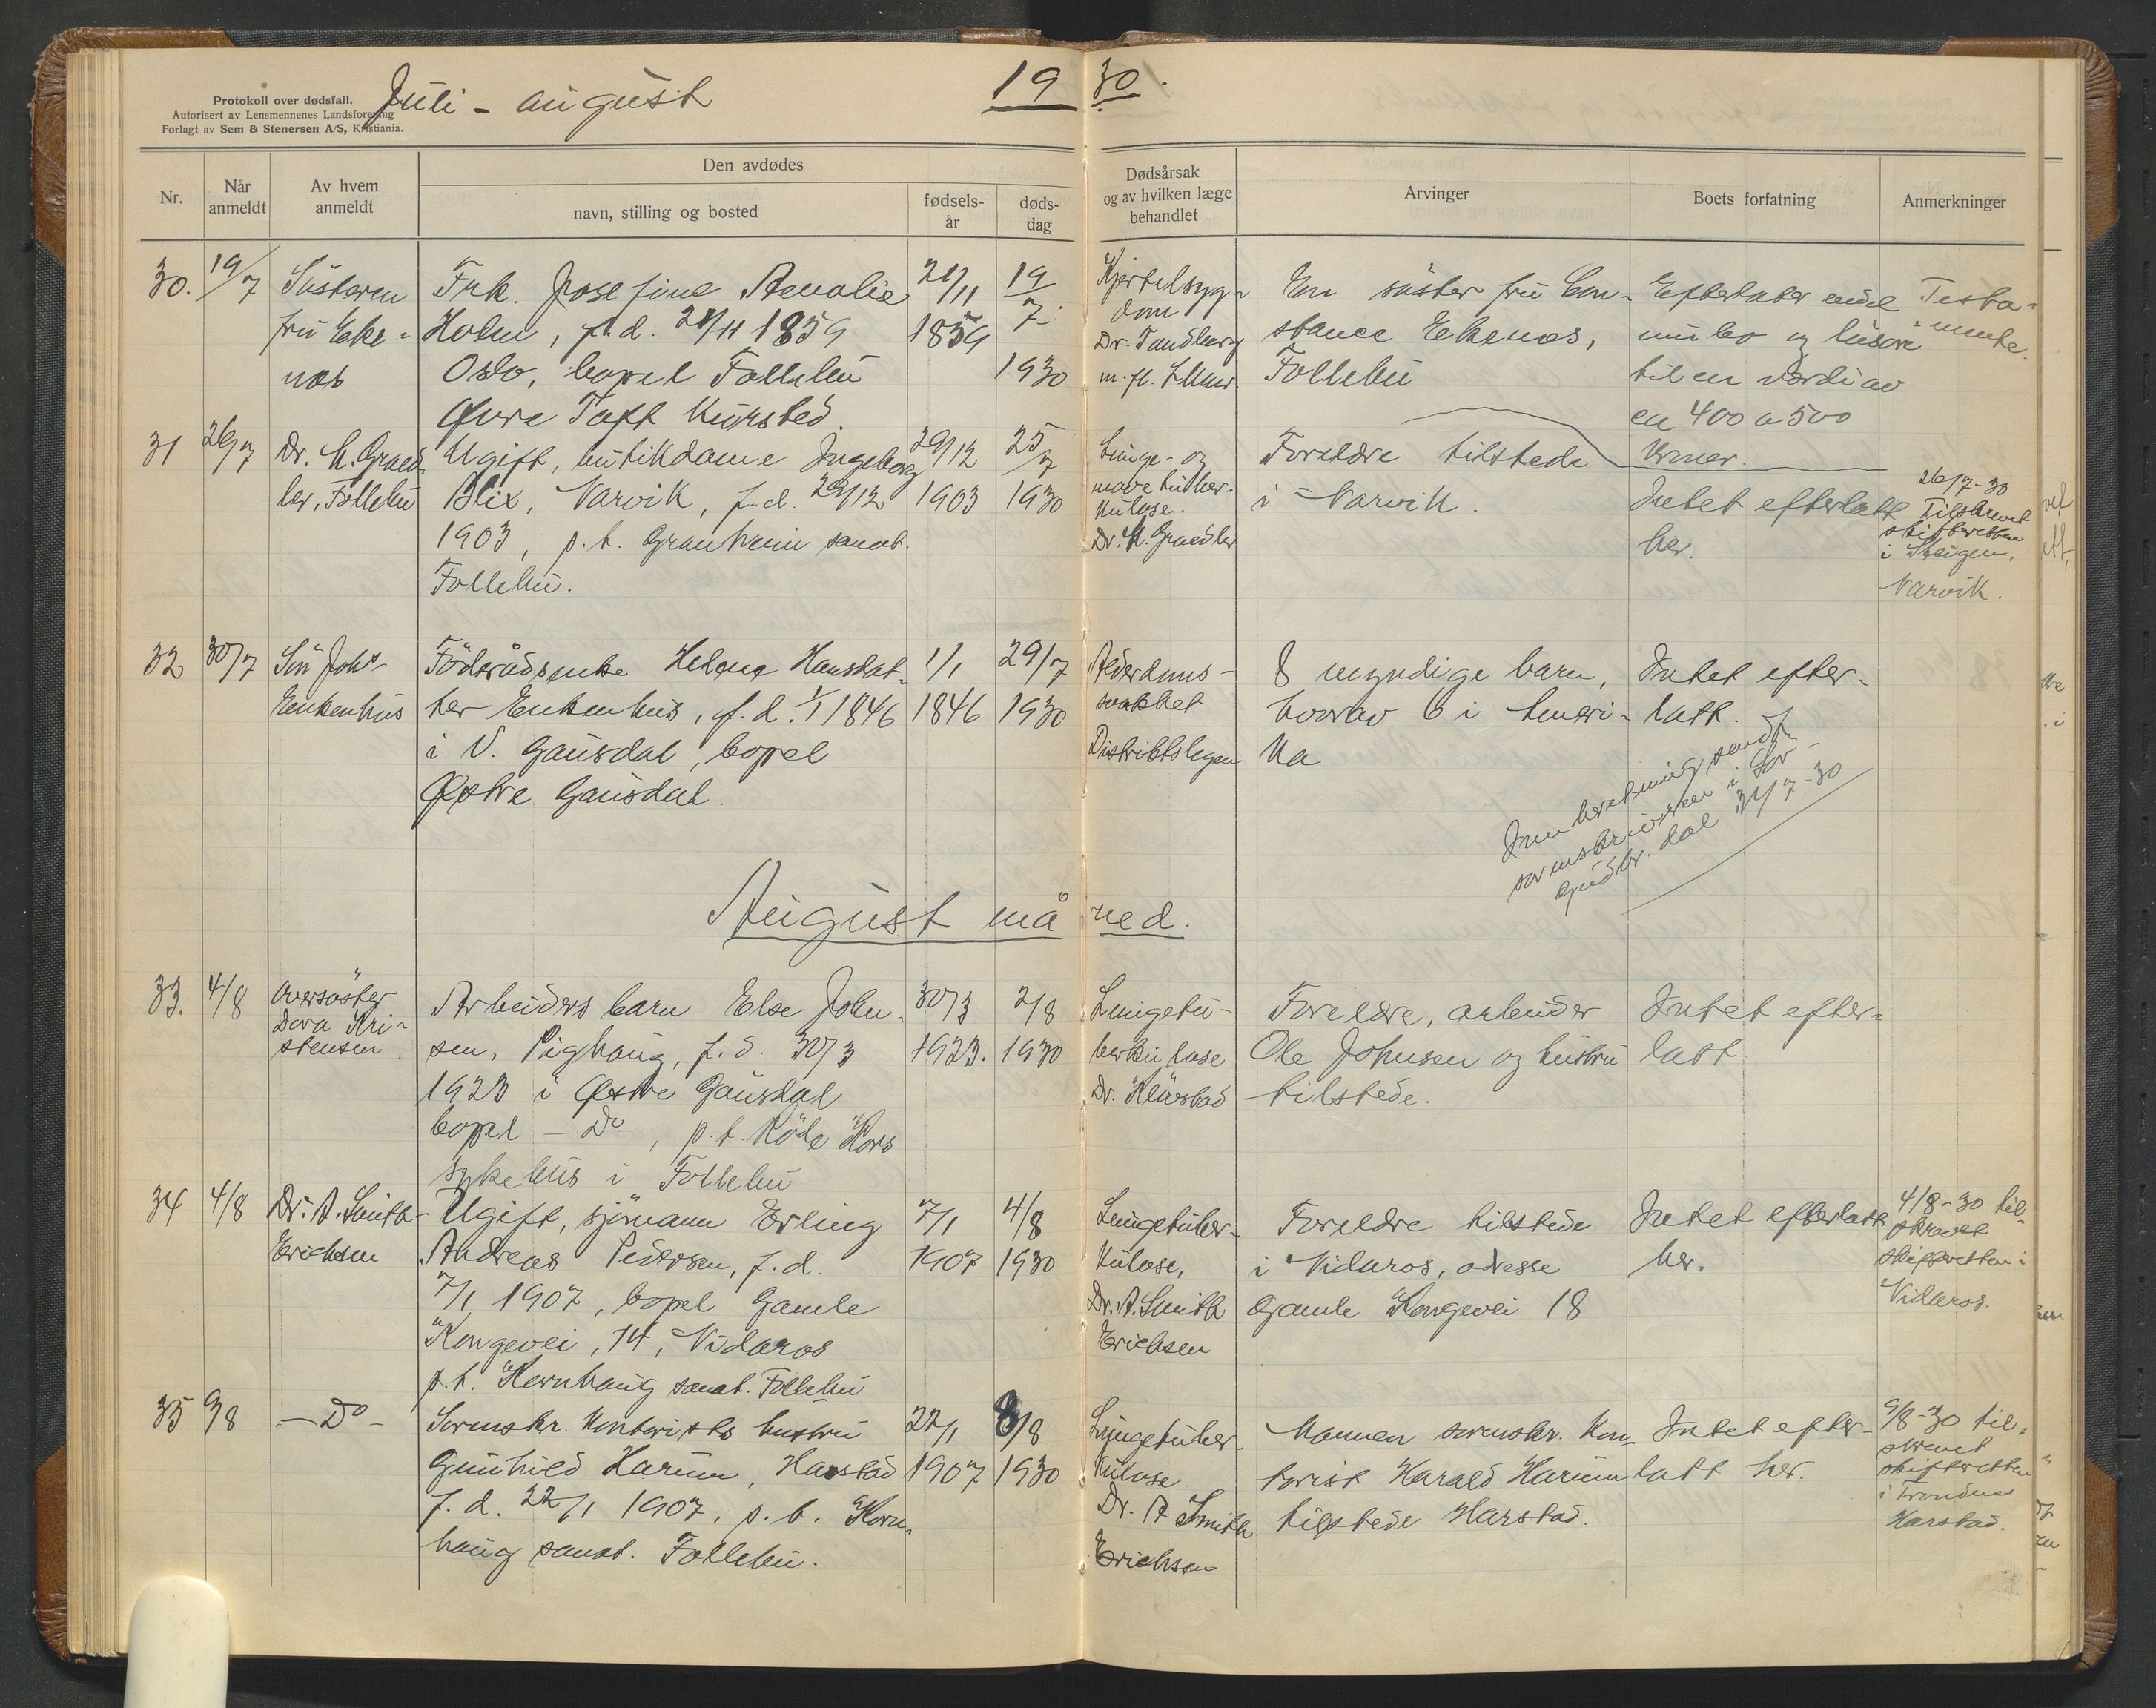 Protokoll over dødsfall.
Autorisert av Lensmennenes Landsforening
Forlagt av Sem & Stenersen A/S, Kristiania.
Juli - august
19 30.
Nr.
Når anmeldt
Av hvem anmeldt
Den avdødes
navn, stilling og bosted
fødsels-
år
døds-
dag
Dødsårsak
og av hvilken læge
behandlet
Arvinger
Boets forfatning
Anmerkninger
30.
19/7
Søsteren
fru Eke-
næs
Frk. Josefine Amalie
Holm, f.d. 21/11 1859
Oslo, bopel Follebu
Øvre Toft kursted.
21/11
1859
19/7
1930
Kjertelsyg-
dom
Dr. Tandberg
m. fl. Lhmr.
En søster fru Con-
stance Ekenæs,
Follebu
Efterlater endel
innbo og løsøre
til en værdi av
ca 400 a 500
kroner.
Testa-
mente.
31
26/7
Dr. H. Graed-
ler, Follebu
Ugift, butikdame Ingeborg
Blix, Narvik, f.d. 29/12
1903, p.t. Granheim sanat.
Follebu.
29/12
1903
25/7
1930
Lunge- og
mavetuber-
kulose.
Dr. H. Graedler
Foreldre tilstede
i Narvik.
Intet efterlatt
her.
26/7-30
Tilskrevet
skifteretten
i Steigen,
Narvik.
32
30/7
Søn Johs
Enkenhus
Föderådsenke Helene Hansdat-
ter Enkenhus, f.d. 1/1 1846
i V. Gausdal, bopel
Østre Gausdal.
1/1
1846
29/7
1930
Alderdoms-
svakhet
Distriktslegen
8 myndige barn,
hvorav 6 i Ameri-
ka
Intet efter-
latt.
Innberetning sendt
sorenskriveren i Sør-
Gudbr. dal 31/7-30
August må ned.
33.
4/8
Oversøster
Dora Kri-
stensen
Arbeiders barn Else John-
sen, Pighaug, f.d. 30/3
1923 i Østre Gausdal
bopel - Do -, p.t. Röde Kors
sykehus i Follebu
30/3
1923.
2/8
1930
Lungetu-
berkulose
Dr. Klovstad
Foreldre, arbeider
Ole Johnsen og hustru
tilstede.
Intet efter-
latt
34
4/8
Dr. A. Smith-
Erichsen
Ugift, sjömann Erling
Andreas Pedersen, f.d.
7/1 1907, bopel Gamle
Kongevei, 14, Nidaros
p.t. Kornhaug sanat. Follebu
7/1
1907
4/8
1930
Lungetuber-
kulose,
Dr. A. Smith
Erichsen
Foreldre tilstede
i Nidaros, adresse
Gamle Kongevei 18
Intet efterlatt
her.
4/8-30 til-
skrevet
skifteretten i
Nidaros.
35
9/8
- Do -
Sorenskr. kontorists hustru
Gunhild Harum, Harstad
f.d. 22/1 1907, p.t. Korn-
haug sanat. Follebu.
22/1
1907
8/8
1930
Lungetuber-
kulose.
Dr. A Smith
Erichsen
Mannen sorenskr. kon-
torist Harald Harum
tilstede Harstad.
Intet efter-
latt her.
9/8-30 til-
skrevet
skifteretten
i Trondnes
Harstad.